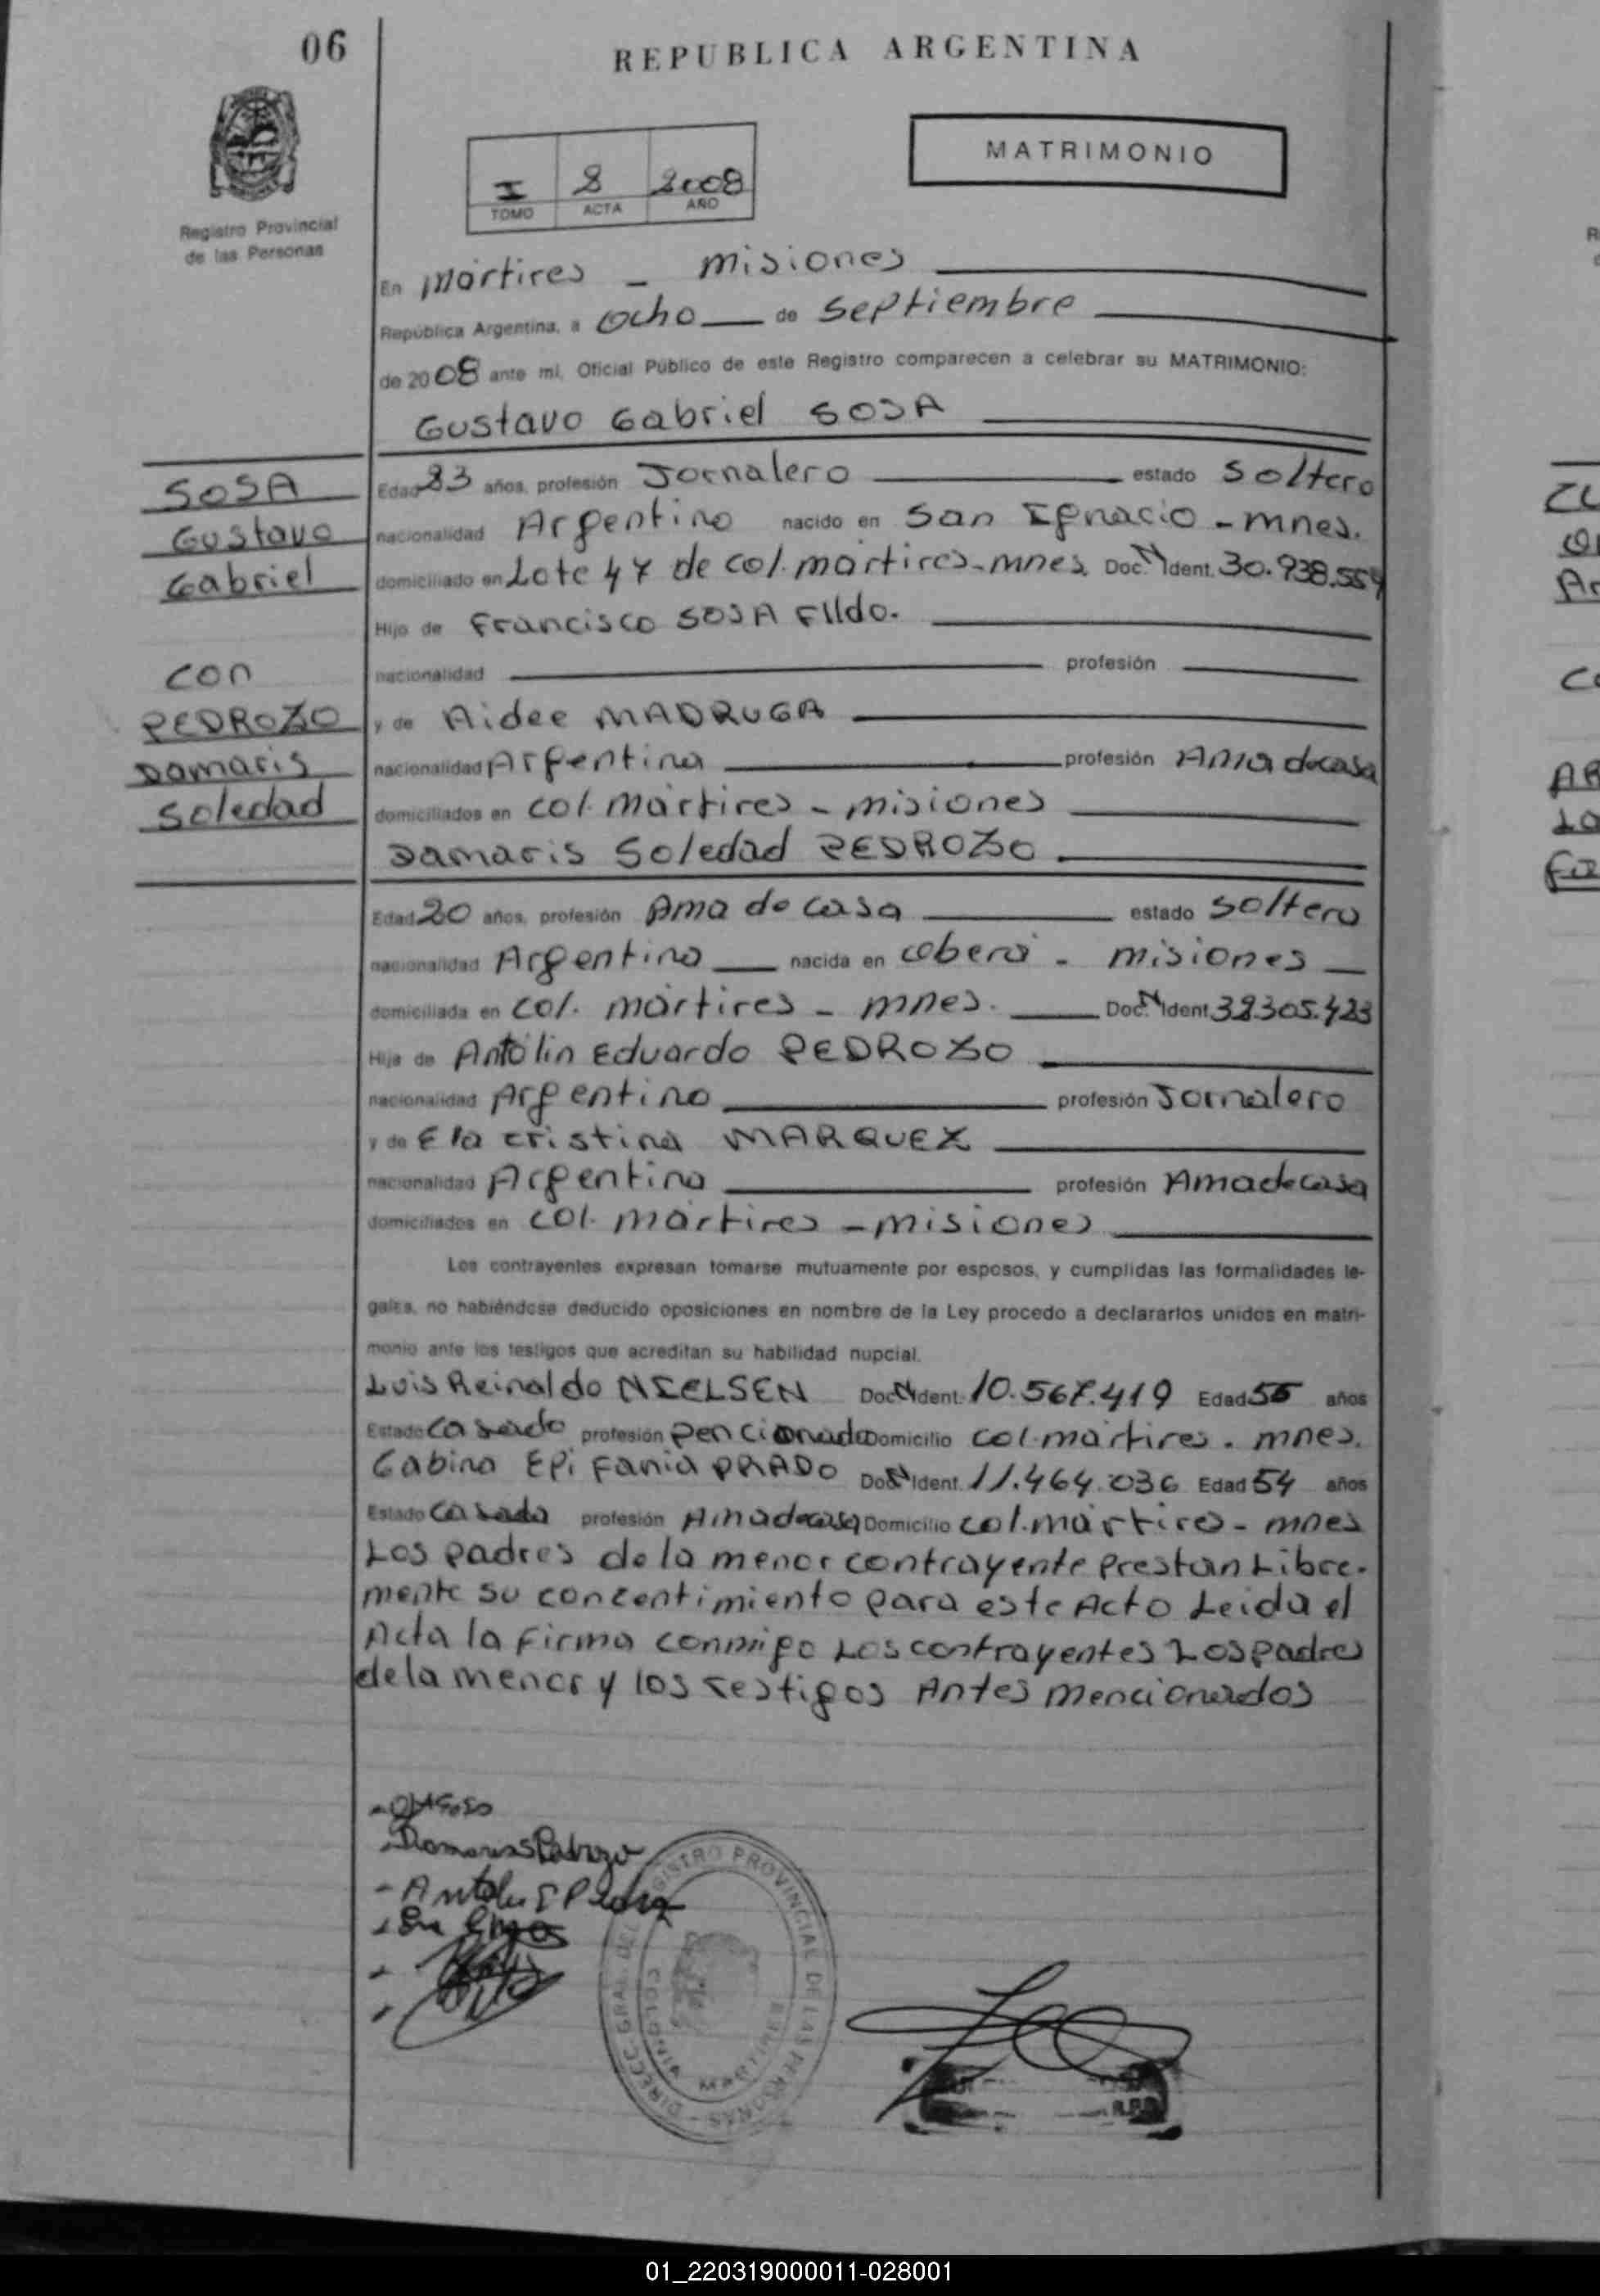 06
REPUBLICA ARGENTINA
MATRIMONIO
I 8 2008
TOMO ACTA AÑO
Registro Provincial
de las Personas
En Mártires - Misiones
República Argentina, a Ocho de Septiembre
de 2008 ante mi, Oficial Público de este Registro comparecen a celebrar su MATRIMONIO:
Gustavo Gabriel SOSA
SOSA
Gustavo
Gabriel
con
PEDROZO
Damaris
Soledad
Edad 23 años, profesión Jornalero estado Soltero
nacionalidad Argentino nacido en San Ignacio - mnes.
domiciliado en Lote 47 de col. mártires - mnes. Doc. N Ident. 30.938.554
Hijo de Francisco SOSA Flldo.
nacionalidad profesión
y de Aidee MADRUGA
nacionalidad Argentina profesión Ama de casa
domiciliados en col. mártires - misiones
Damaris Soledad PEDROZO
Edad 20 años, profesión Ama de casa estado Soltera
nacionalidad Argentina nacida en Oberá - misiones
domiciliada en col. mártires - mnes. Doc. N Ident. 32305.423
Hija de Antolin Eduardo PEDROZO
nacionalidad Argentino profesión Jornalero
y de Ela cristina MARQUEZ
nacionalidad Argentina profesión Ama de casa
domiciliados en col. mártires - misiones
Los contrayentes expresan tomarse mutuamente por esposos, y cumplidas las formalidades le-
gales, no habiéndose deducido oposiciones en nombre de la Ley procedo a declararlos unidos en matri-
monio ante los testigos que acreditan su habilidad nupcial.
Luis Reinaldo NIELSEN Doc. N Ident. 10.567.419 Edad 55 años
Estado casado profesión pencionado Domicilio col. mártires. mnes.
Gabina Epifania PRADO Doc. N Ident. 11.464.036 Edad 54 años
Estado casada profesión Ama de casa Domicilio col. mártires - mnes
Los padres de la menor contrayente prestan Libre-
mente su concentimiento para este Acto Leida el
Acta la Firma conmigo Los contrayentes Los padres
de la menor y los testigos Antes mencionados
DIRECC. GRAL. DEL REGISTRO PROVINCIAL DE LAS PERSONAS
COLONIA MARTIRES
01_220319000011-028001